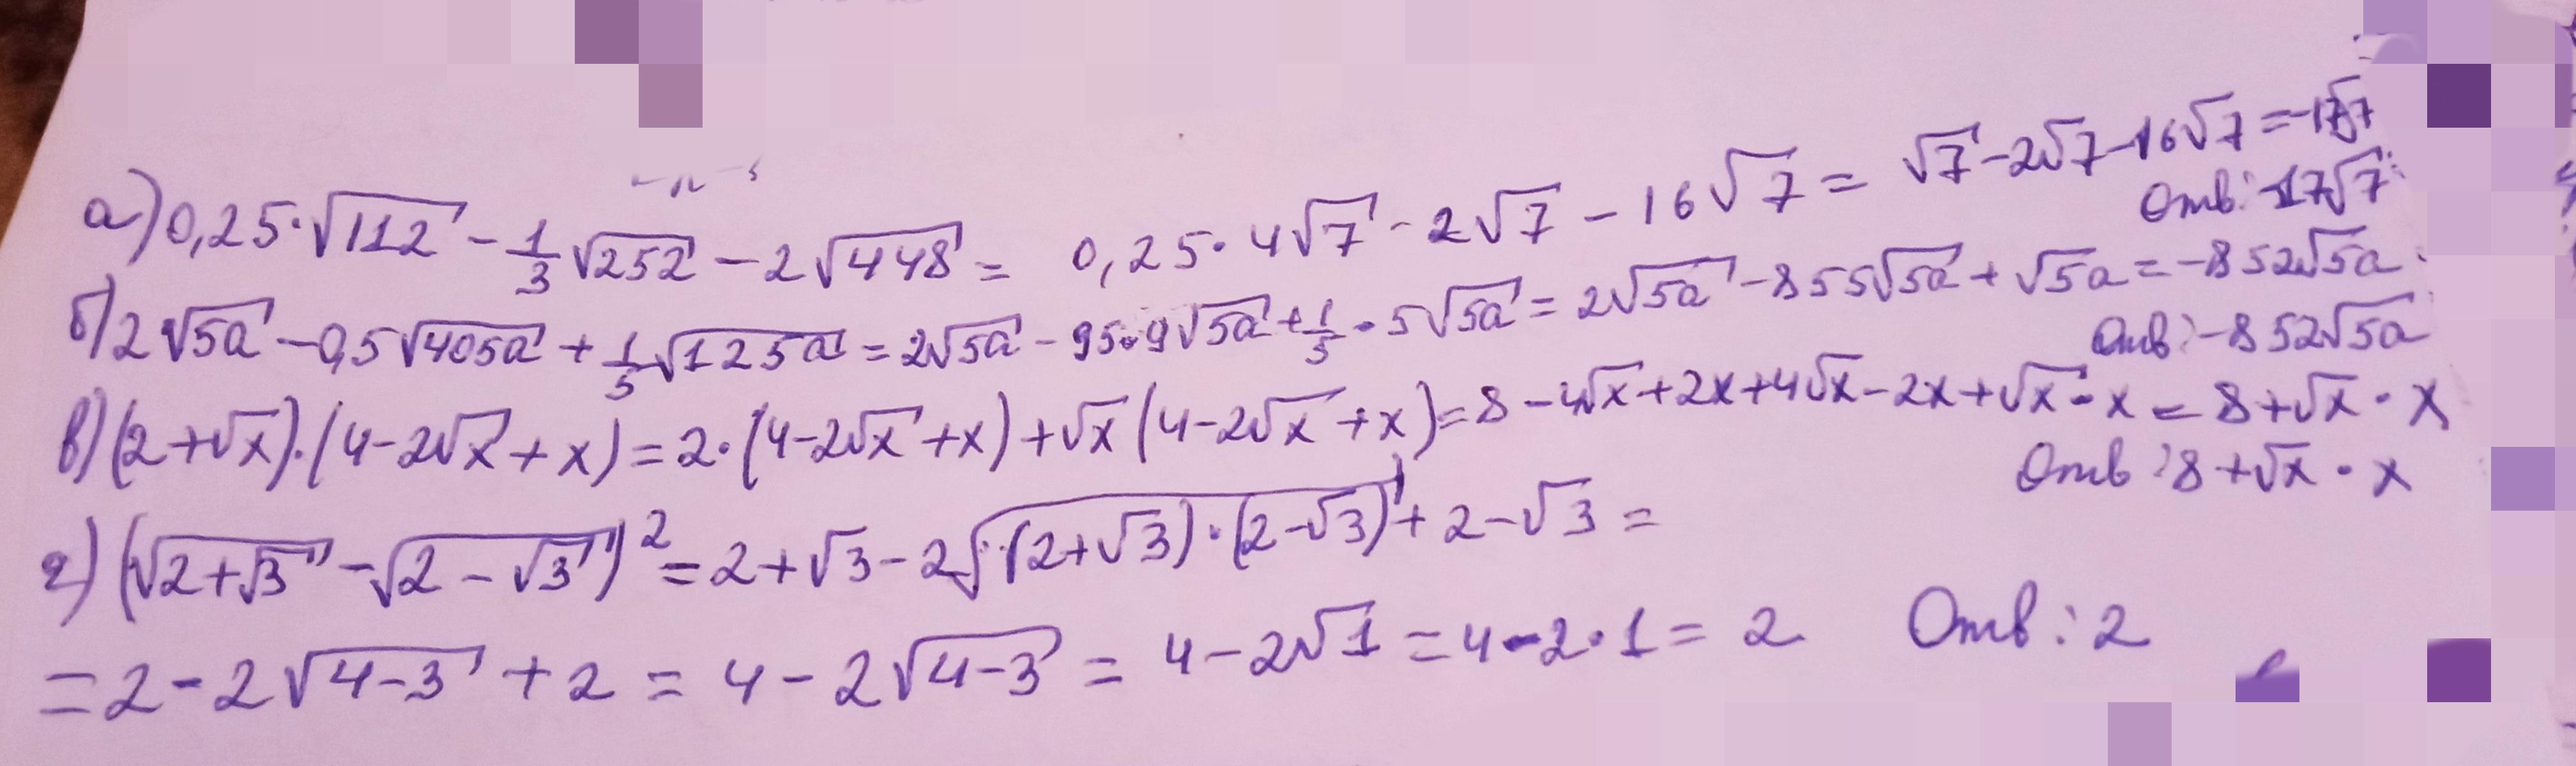 а) 0,25·√112 - 1/3 √252 - 2√448 = 0,25·4√7 - 2√7 - 16√7 = √7 - 2√7 - 16√7 = -17√7
Отв: -17√7
б) 2√5a - 0,5√405a + 1/5 √125a = 2√5a - 95·9√5a + 1/5 · 5√5a = 2√5a - 855√5a + √5a = -852√5a
Отв: -852√5a
в) (2+√x)·(4-2√x+x) = 2·(4-2√x+x)+√x(4-2√x+x) = 8-4√x+2x+4√x-2x+√x·x = 8+√x·x
Отв: 8+√x·x
г) (√(2+√3) - √(2-√3))² = 2+√3-2√((2+√3)·(2-√3))+2-√3 =
= 2-2√(4-3)+2 = 4-2√(4-3) = 4-2√1 = 4-2·1 = 2 Отв: 2